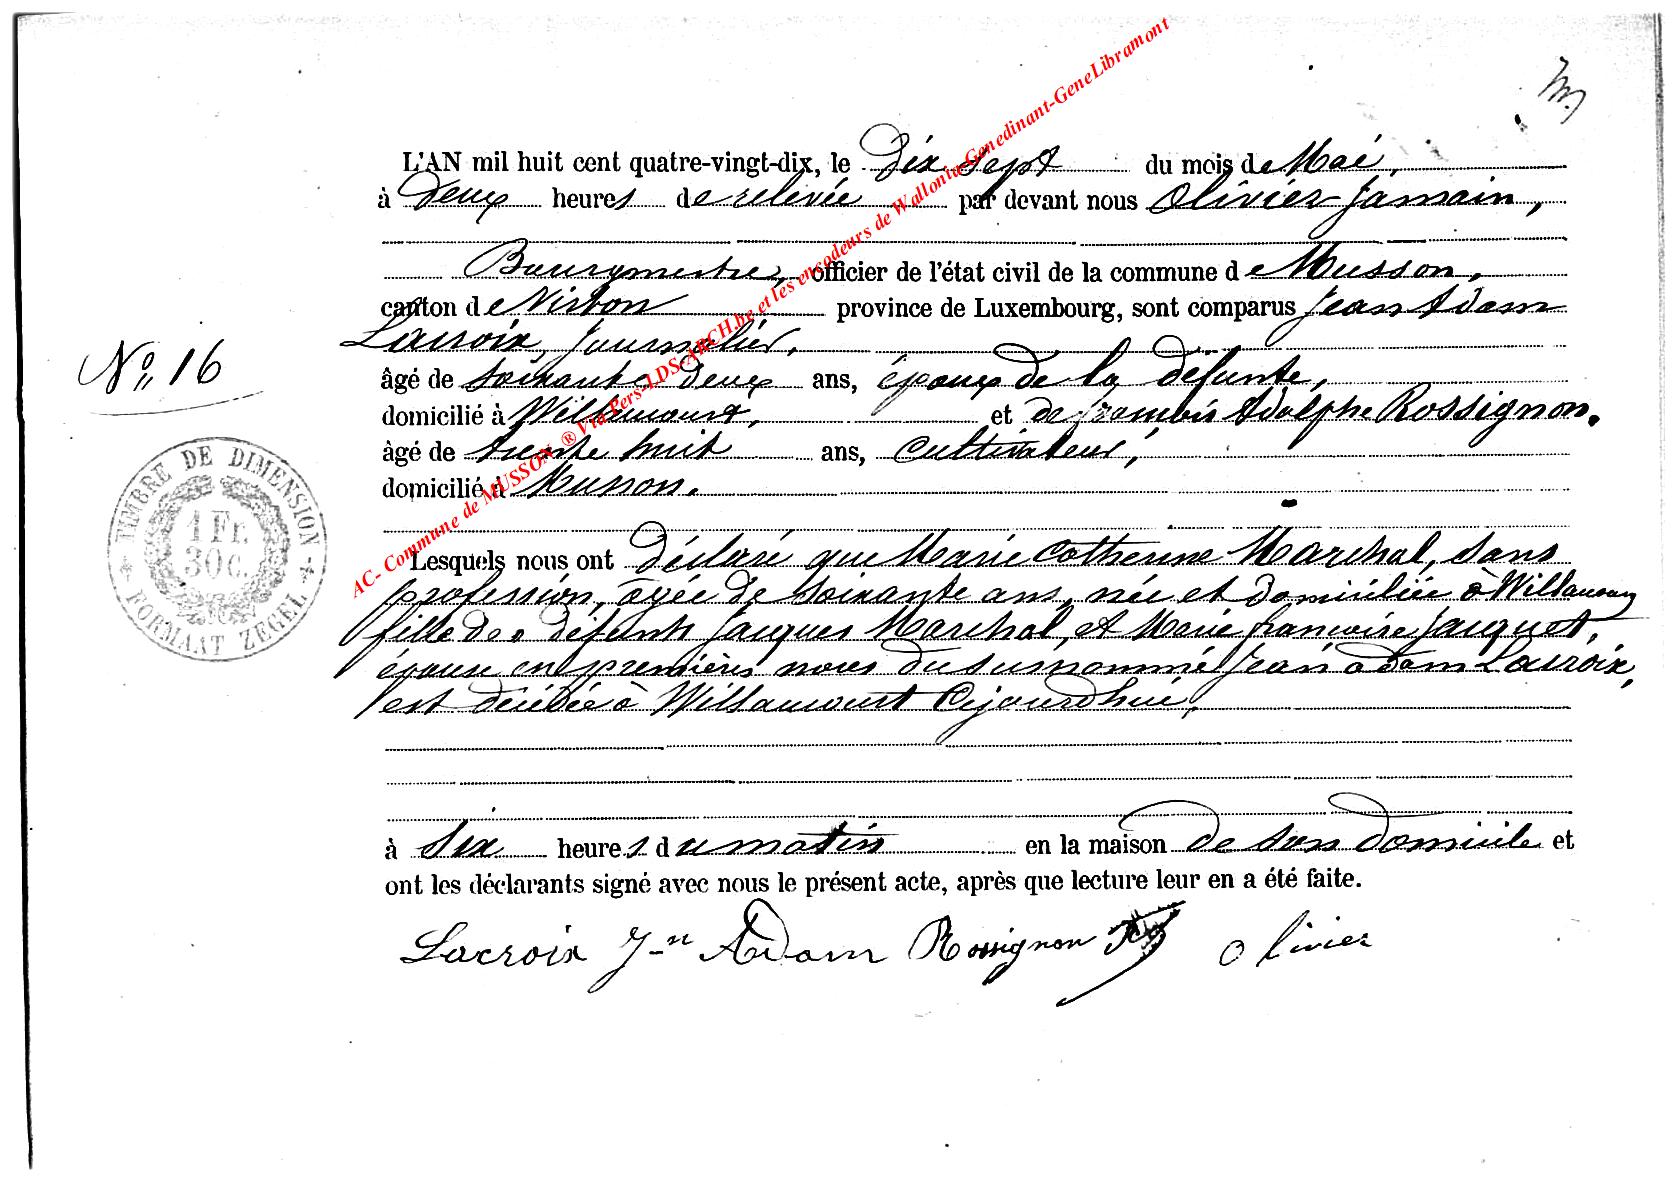 L'AN mil huit cent quatre-vingt-dix, le Dix sept du mois de Mai,
à Deux heures de relevée par devant nous Olivier Jamain,
Bourgmestre, officier de l'état civil de la commune de Musson,
canton de Virton province de Luxembourg, sont comparus Jean Adam
Lacroix, Journalier,
âgé de soixante deux ans, époux de la défunte,
domicilié à Willancourt, et de françois Adolphe Rossignon,
âgé de trente huit ans, cultivateur,
domicilié à Musson.
N° 16
TIMBRE DE DIMENSION
1 Fr.
30 C.
FORMAAT ZEGEL
Lesquels nous ont déclaré que Marie Catherine Marchal, sans
profession, âgée de soixante ans, née et domiciliée à Willancourt
fille des défunts Jacques Marchal, et Marie françoise Jacquet,
épouse en premières noces du susnommé Jean adam Lacroix,
est décédée à Willancourt Cejourdhui,
à six heures du matin en la maison de son domicile et
ont les déclarants signé avec nous le présent acte, après que lecture leur en a été faite.
Lacroix J-n Adam Rossignon Olivier
AC- Commune de MUSSON ® Via Pers-LDS-ARCH.be et les encodeurs de Wallonia-Genedinant-GeneLibramont